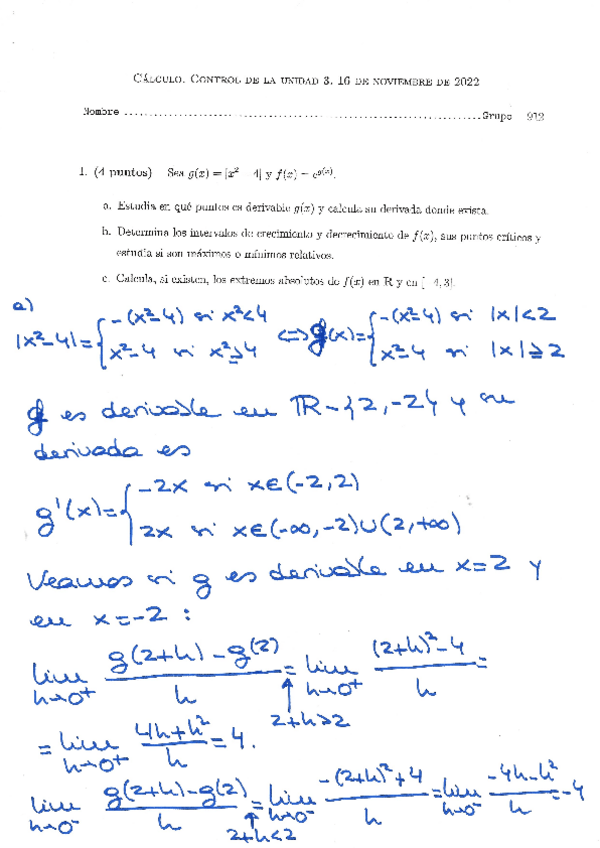 CÁLCULO. CONTROL DE LA UNIDAD 3. 16 DE NOVIEMBRE DE 2022
Nombre ........................................................................Grupo 912
1. (4 puntos) Sea g(x) = |x² − 4| y f(x) = e^{g(x)}.
a. Estudia en qué puntos es derivable g(x) y calcula su derivada donde exista.
b. Determina los intervalos de crecimiento y decrecimiento de f(x), sus puntos críticos y
estudia si son máximos o mínimos relativos.
c. Calcula, si existen, los extremos absolutos de f(x) en R y en [−4, 3].
a)
|x²-4| = { -(x²-4) si x²<4 ⟺ g(x) = { -(x²-4) si |x|<2
x²-4 si x²≥4 x²-4 si |x|≥2
g es derivable en ℝ-{2,-2} y su
derivada es
g'(x) = { -2x si x∈(-2,2)
2x si x∈(-∞,-2)∪(2,+∞)
Veamos si g es derivable en x=2 y
en x=-2 :
lim h→0⁺ (g(2+h)-g(2))/h = lim h→0⁺ ((2+h)²-4)/h =
2+h>2
= lim h→0⁺ (4h+h²)/h = 4.
lim h→0⁻ (g(2+h)-g(2))/h = lim h→0⁻ (-(2+h)²+4)/h = lim h→0⁻ (-4h-h²)/h = -4
2+h<2